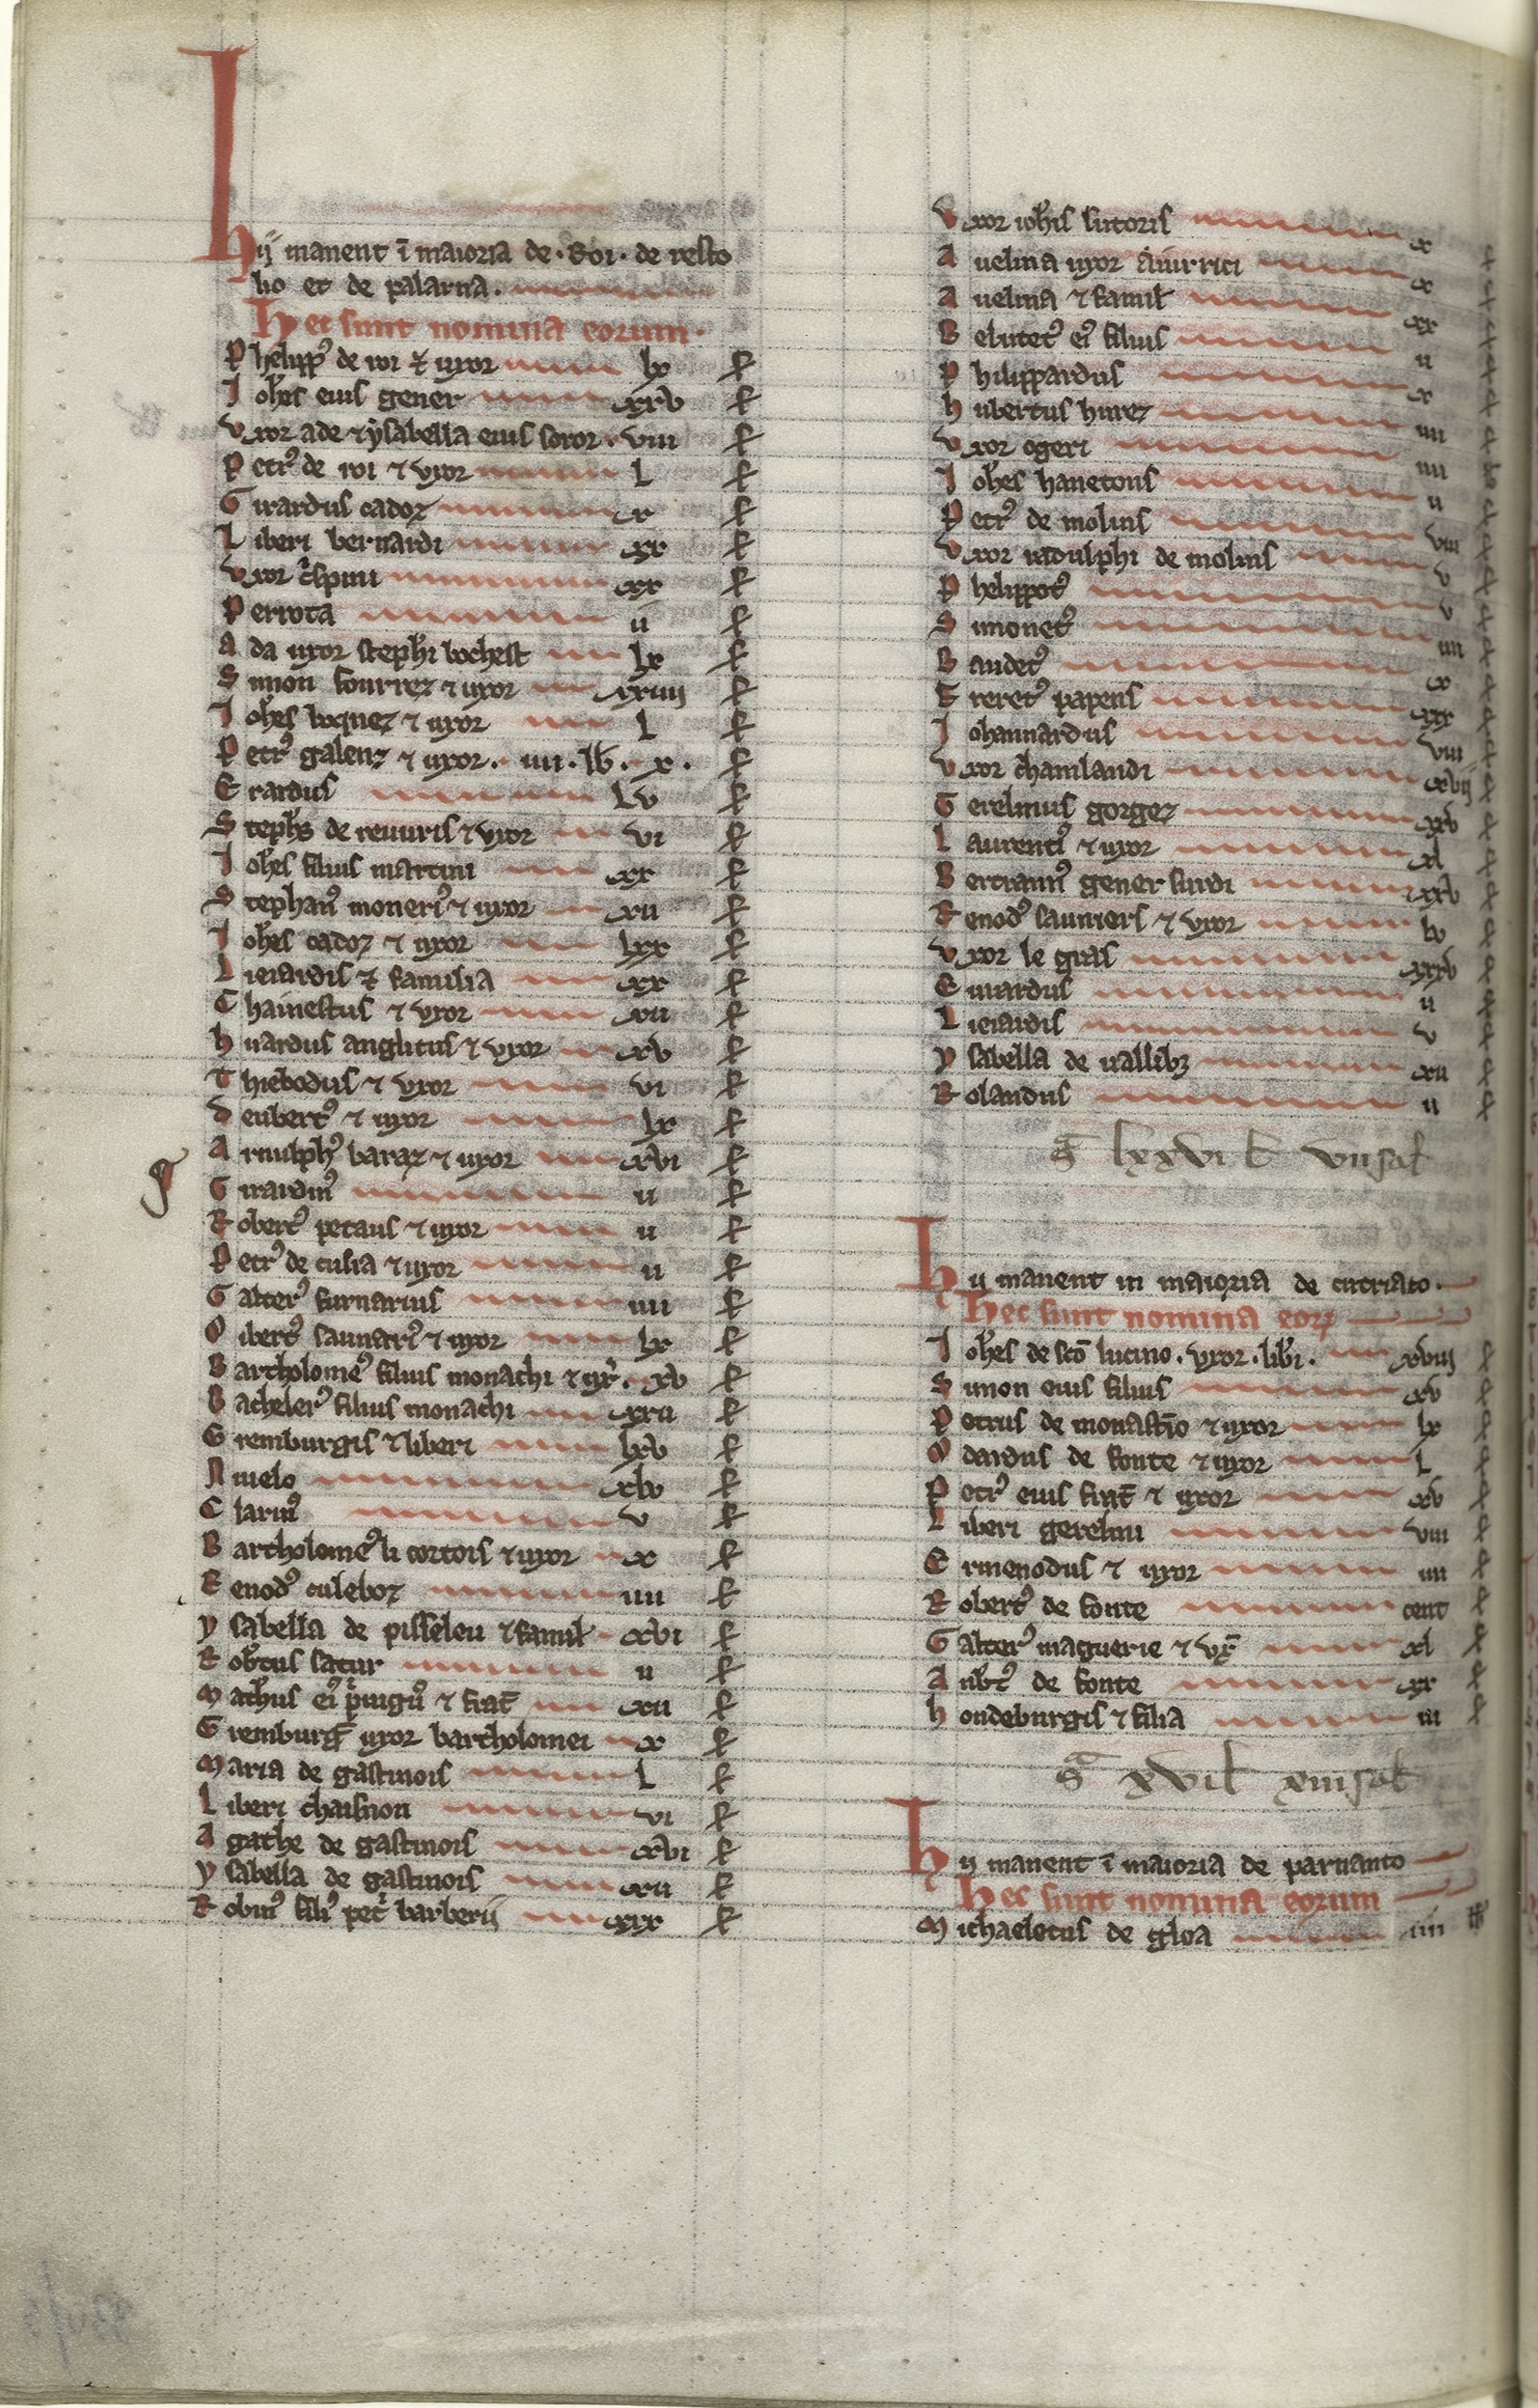 Hij manent ī maioria de . Roi . de resto
ho et de palarna .
Hec sunt nomina eorum .
Phelipp᷒ de roi ⁊ uxor lx
Joh̄es eius gener xxv
Vxor ade ⁊ ysabella eius soror . viii
Petr᷒ de roi ⁊ vxor L
Girardus cadoz x
Liberi bernardi xx
Vxor c̓spini xx
Perrota ii
Ada uxor steph̄i bochest lx
Simon fourrez ⁊ uxor xxiiii
Joh̄es boquez ⁊ uxor L
Petr᷒ galenz ⁊ uxor . iiii . lb̄ . x .
Erardus Lv
Steph̄s de reuuris ⁊ vxor vi
Joh̄es filius martini xx
Stephan᷒ moneri᷒ ⁊ uxor xii
Joh̄es cadoz ⁊ uxor lxx
Lieiardis ⁊ familia xx
Chainestus ⁊ vxor xii
Huardus anglicus ⁊ vxor xv
Thiebodus ⁊ vxor vi
Deubert᷒ ⁊ uxor lx
Arnulph᷒ baraz ⁊ uxor xvi
Girardin᷒ ii
Robert᷒ petaus ⁊ uxor ii
Petr᷒ de culia ⁊ uxor ii
Galter᷒ furnarius iiii
Oibert᷒ saunari᷒ ⁊ uxor lx
Bartholome᷒ filius monachi ⁊ ux̓ . xv
Bacheler᷒ filius monachi xxii
Gremburgis ⁊ liberi lxv
Auuelo xlv
Clarin᷒ v
Bartholome᷒ li cortois ⁊ uxor x
Renod᷒ culeboz iiii
Ysabella de pisseleu ⁊ famil̄ xvi
Rob̄tus satur ii
Math̄us ei᷒ p̓uign᷒ ⁊ frat̄ xii
Gremburḡ uxor bartholomei x
Maria de gastinois L
Liberi chaisnon vi
Agathe de gastinois xvi
Ysabella de gastinois xii
Robin᷒ fili᷒ pet̓ barberij xix
Vxor ioh̄is sutoris x
Auelina uxor Auirrici x
Auelina ⁊ famil̄ xx
Belutet᷒ ei᷒ filius ii
Philippardus x
Hubertus hurez iiii
Vxor ogeri iiii
Joh̄es hanetons ii
Petr᷒ de molins viii
Vxor radulphi de molins v
Phelippot᷒ v
Simonet᷒ iiii
Baudet᷒ x
Greret᷒ papens xxx
Johannardus viii
Vxor chamlandi xvij
Gerelmus gorgez xxv
Laurenti᷒ ⁊ uxor xl
Bertrann᷒ gener surdi xxv
Renod᷒ sauniers ⁊ vxor lv
Vxor le gras xxxv
Euuardus ii
Lieiardis v
Ysabella de uallibz xii
Rolandus ii
Sᵃ lxxvi l̄ vii sol̄
Hii manent in maioria de cutriaco .
Hec sunt nomina eorꝝ
Joh̄es de sc̄o lucino . vxor . lib̄i . xviii
Simon eius filius xv
Petrus de monast̄io ⁊ uxor lx
Odardus de fonte ⁊ uxor L
Petr᷒ eius frat̄ ⁊ uxor xv
Liberi gerelmi viii
Ermenodus ⁊ uxor iiii
Robert᷒ de fonte cent
Galter᷒ maguerie ⁊ vx̄ xl
Aub̄t᷒ de fonte xx
Hondeburgis ⁊ filia iii
Sᵃ xvi l̄ xiii sol̄
Hij manent ī maioria de parnanto
Hec sunt nomina eorum
Michaeletus de gloa iiii